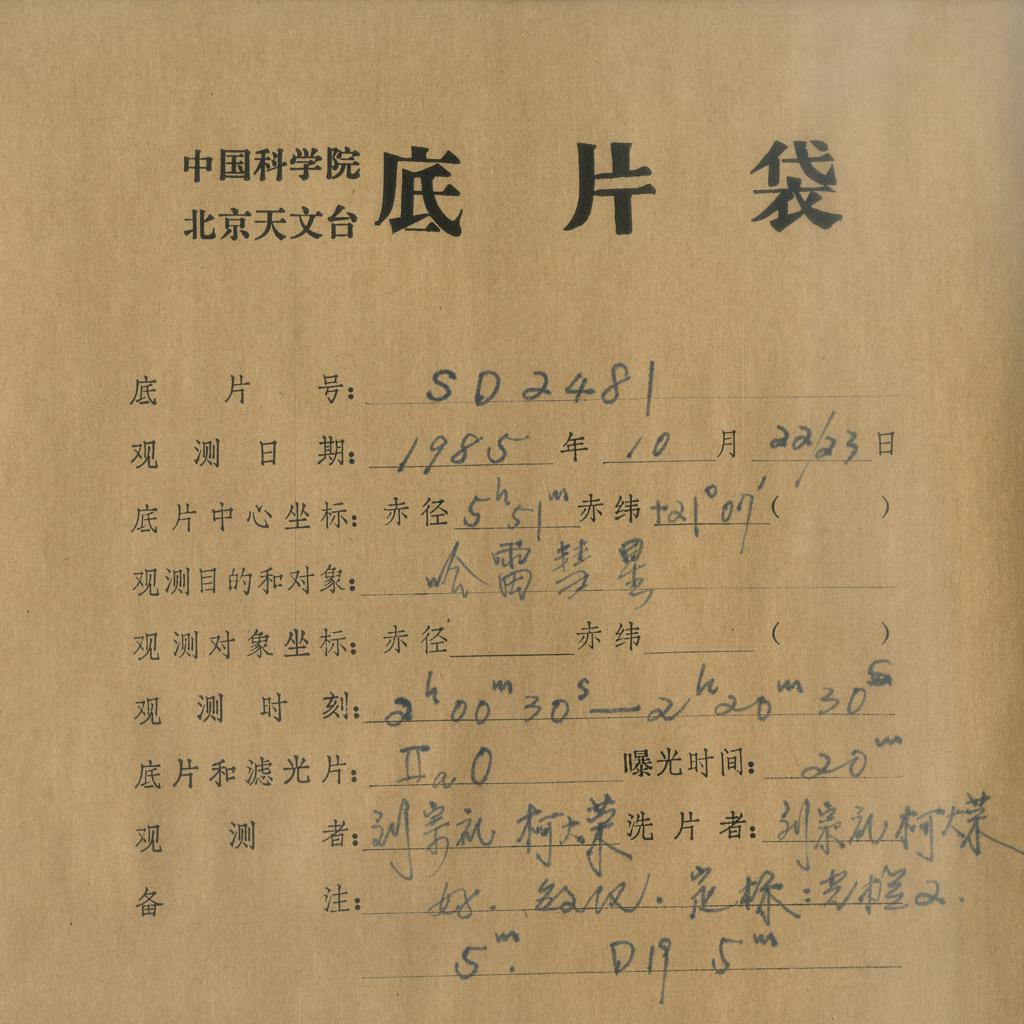 中国科学院
北京天文台
底片袋
底片号：SD2481
观测日期：1985年10月22/23日
底片中心坐标：赤径5h51m赤纬+21°07′（ ）
观测目的和对象：哈雷彗星
观测对象坐标：赤径 赤纬 （ ）
观测时刻：2h00m30s—2h20m30s
底片和滤光片：IIaO 曝光时间：20m
观测者：刘宗礼 柯大荣 洗片者：刘宗礼 柯大荣
备注：好. 定标：光楔2.
5m. D19 5m